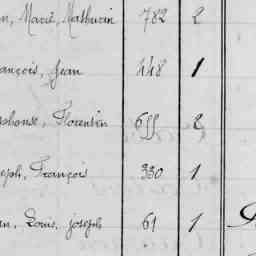 n, Marie, Mathurin 782 2
ançois, Jean 448 1
phonse, Florentin 655 2
seph, François 330 1
an, Louis, joseph 61 1